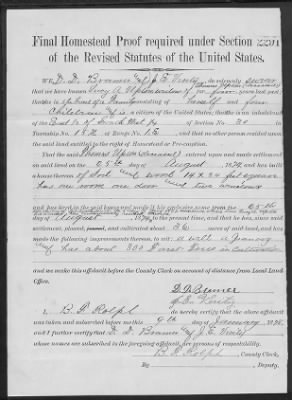 Final Homestead Proof required under Section 2291
of the Revised Statutes of the United States.
We D. D. Brunner & J. E. Vinty, do solemnly swear
that we have known for years last past;
that is head of a family consisting of herself and four
children & is a citizen of the United States; that is an inhabitant of the
of Section No. 20
Township No. 15 N. of Range No. 15, and that no other person resided upon
the said land entitled to the right of Homestead or Pre-emption.
That the said entered upon and made settlement
on said land on the 25th day of August, 18 and has built
a house of Sod and wood 14 x 24 feet square
has one room one door and two windows
and has lived in the said house and made it exclusive home from the 25th
day of August 18 to the present time, and that he has, since said
settlement, plowed, and cultivated about 36 acres of said land, and has
made the following improvements thereon, to wit: a well a granary
& has about 300 Forest Trees in cultivation
and we make this affidavit before the County Clerk on account of distance from Local Land
Office.
D. D. Brunner
J. E. Vinty
I, B. D. Rolph, do hereby certify that the above affidavit
was taken and subscribed before me this 9th day of January 18
and I further certify that D. D. Brunner & J. E. Vinty
whose names are subscribed to the foregoing affidavit, are persons of respectability.
B. D. Rolph, County Clerk,
By Deputy.